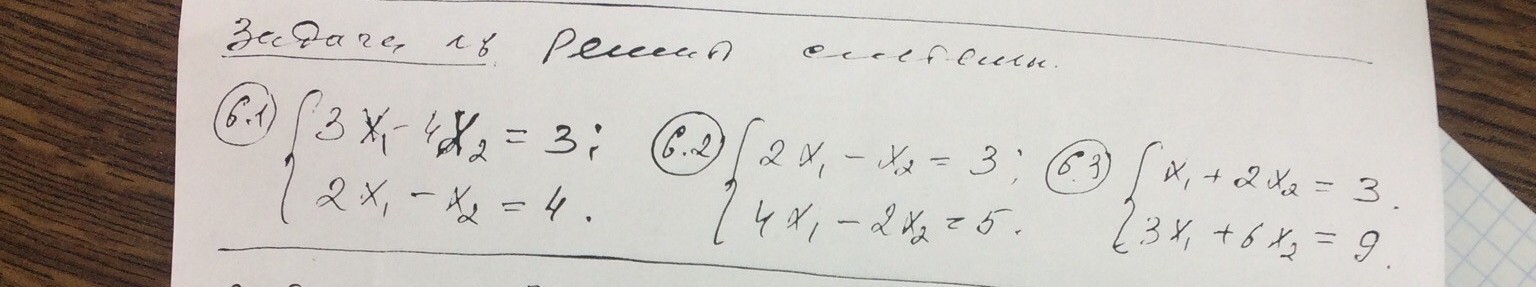 Задача 16. Решить системы.
6.1 { 3x₁ - 4x₂ = 3; 6.2 { 2x₁ - x₂ = 3; 6.3 { x₁ + 2x₂ = 3.
2x₁ - x₂ = 4. 4x₁ - 2x₂ = 5. 3x₁ + 6x₂ = 9.